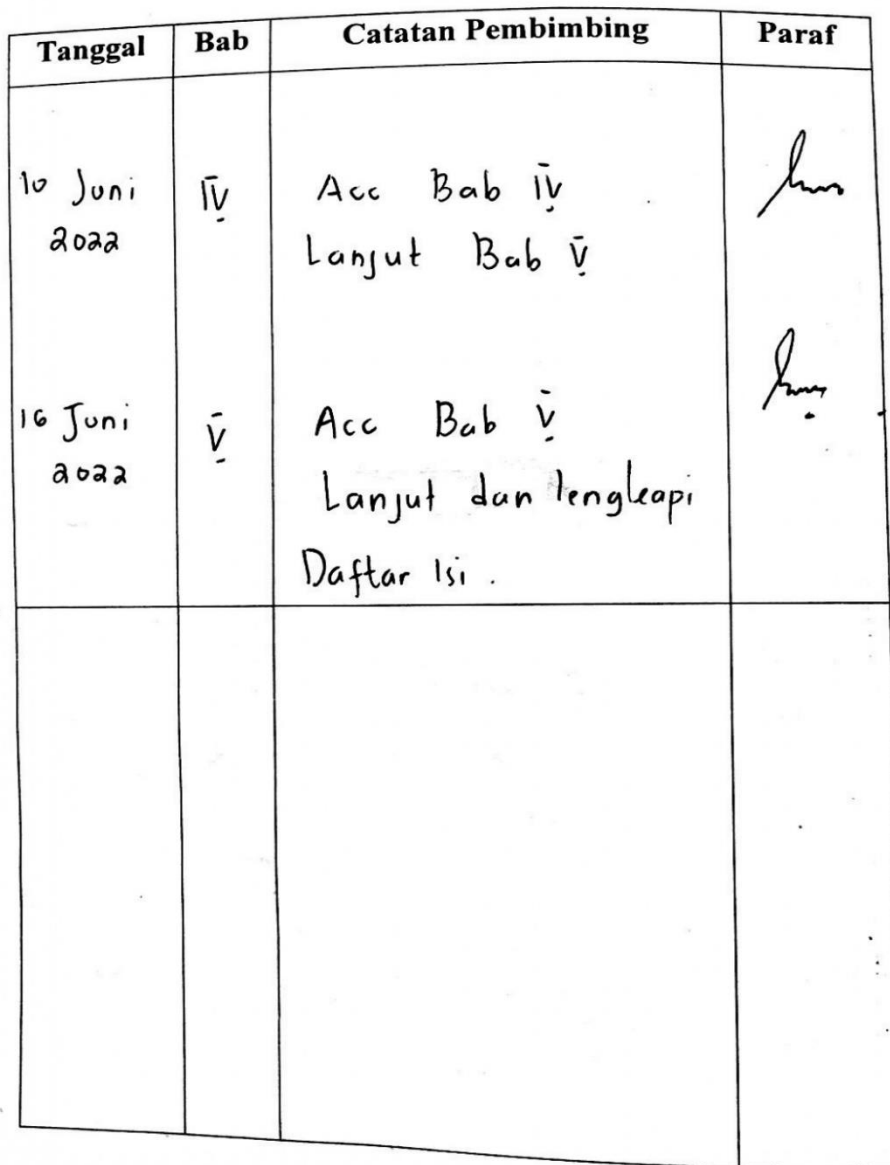 Tanggal Bab Catatan Pembimbing Paraf
10 Juni IV Acc Bab IV
2022 Lanjut Bab V
16 Juni V Acc Bab V
2022 Lanjut dan lengkapi
Daftar Isi .